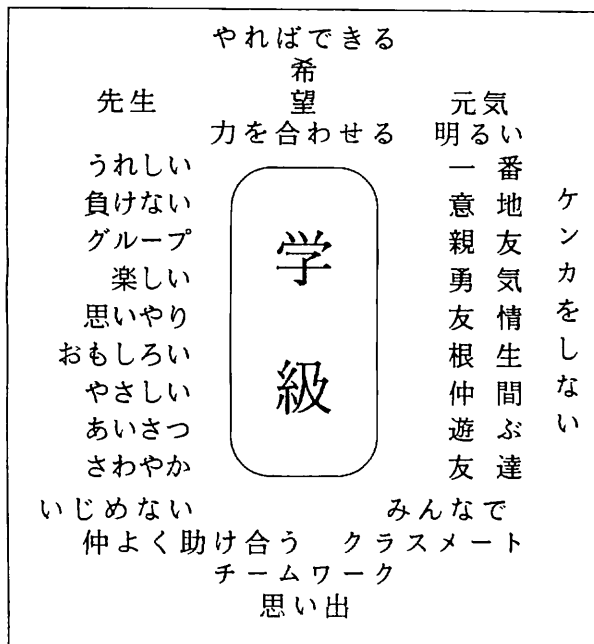 やればできる
希
望
先生
元気
力を合わせる
明るい
うれしい
負けない
グループ
楽しい
思いやり
おもしろい
やさしい
あいさつ
さわやか
学級
一番
意地
親友
勇気
友情
根生
仲間
遊ぶ
友達
ケンカをしない
いじめない
みんなで
仲よく助け合う
クラスメート
チームワーク
思い出